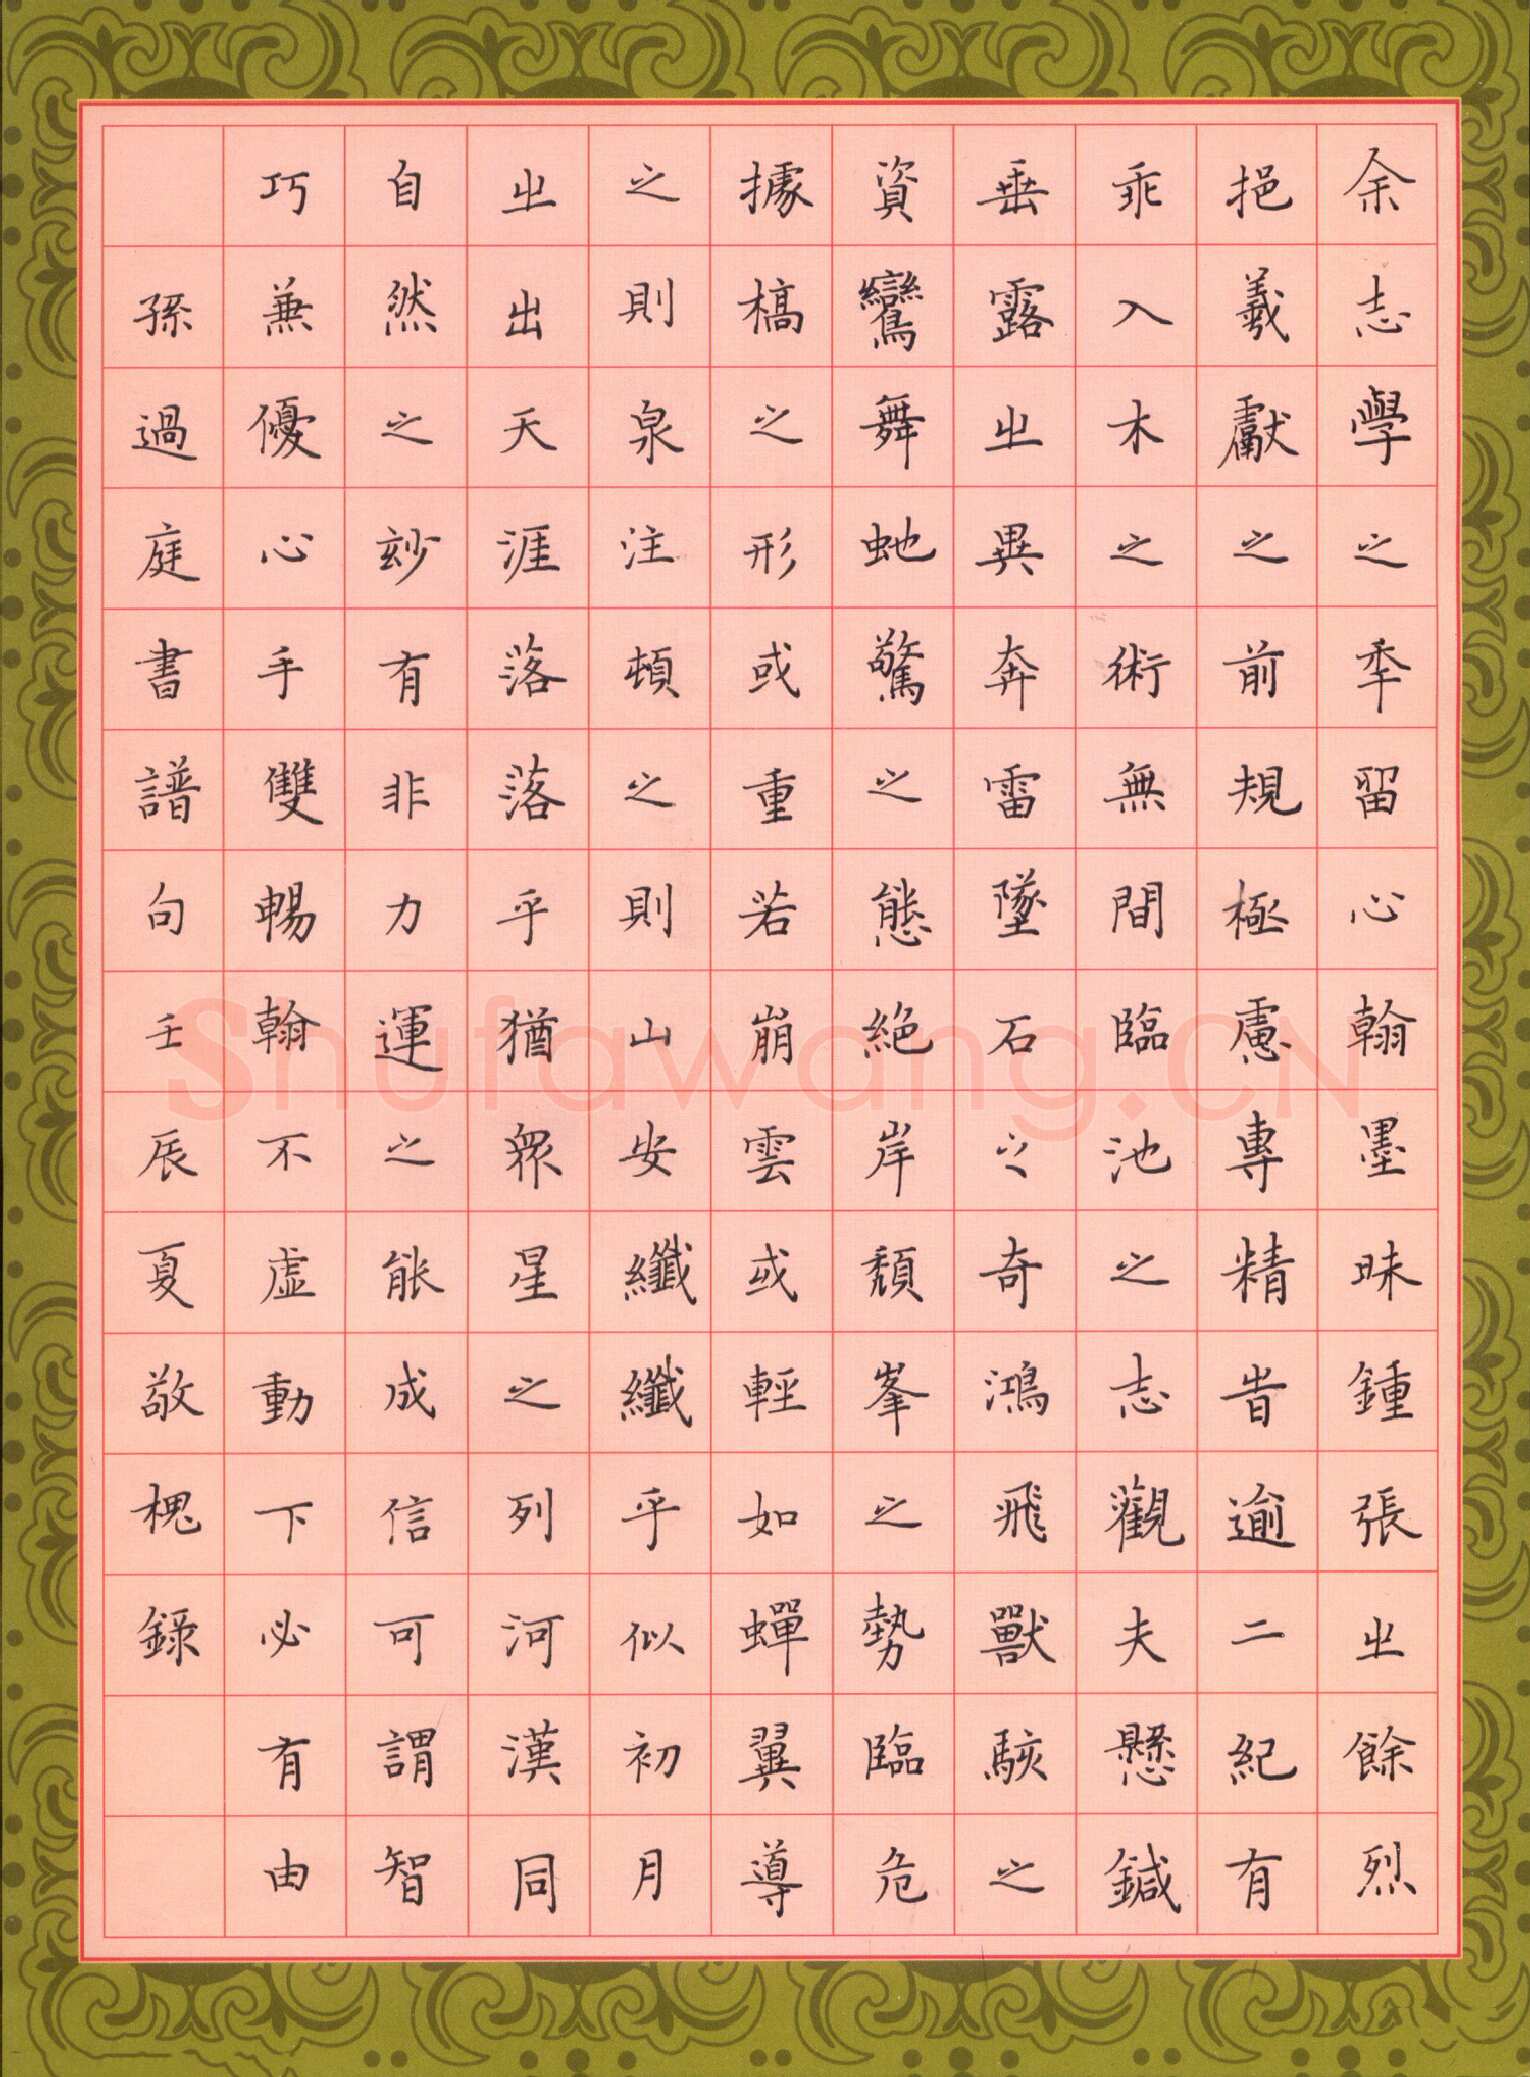 余志學之季留心翰墨味鍾張之餘烈
挹羲獻之前規極慮專精旹逾二紀有
乖入木之術無間臨池之志觀夫懸鍼
垂露之異奔雷墜石之奇鴻飛獸駭之
資鸞舞虵驚之態絶岸頹峯之勢臨危
據槁之形或重若崩雲或輕如蟬翼導
之則泉注頓之則山安纖纖乎似初月
之出天涯落落乎猶衆星之列河漢同
自然之玅有非力運之能成信可謂智
巧兼優心手雙暢翰不虛動下必有由
孫過庭書譜句壬辰夏敬槐錄
Shufawang.CN